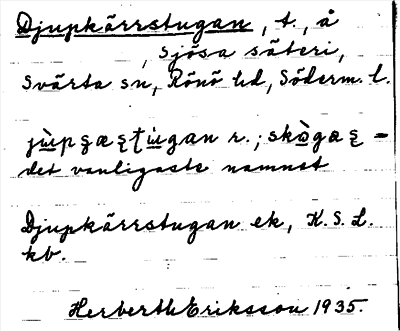 Djupkärrstugan, t., å
, Sjösa säteri,
Svärta sn, Rönö hd, Söderm. l.
jùpçæʂtùgan r.; skògæʂ =
det vanligaste namnet
Djupkärrstugan ek, K. S. L.
kb.
Herberth Eriksson 1935.